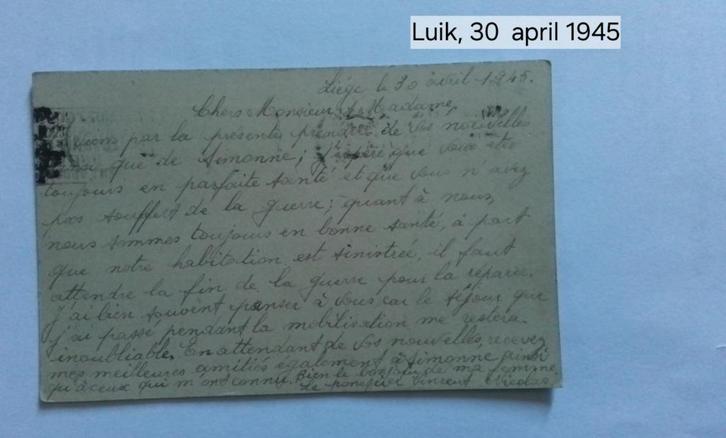 Luik, 30 april 1945
Liége le 30 avril 1945.
Chers Monsieur & Madame,
par la présente prendre de vos nouvelles
que de Simonne; j'espère que vous etes
toujours en parfaite santé et que vous n'avez
pas souffert de la guerre; quant à nous,
nous sommes toujours en bonne santé, à part
que notre habitation est sinistrée, il faut
attendre la fin de la guerre pour la réparer.
J'ai bien souvent panser à vous car le séjour que
j'ai passé pendant la mobilisation me restera
inoubliable. En attendant de vos nouvelles, recevez
mes meilleures amitiés également à Simonne ainsi
qu'à ceux qui m'ont connu. Bien le bonjour de ma femme
Le Vincent Nicolas